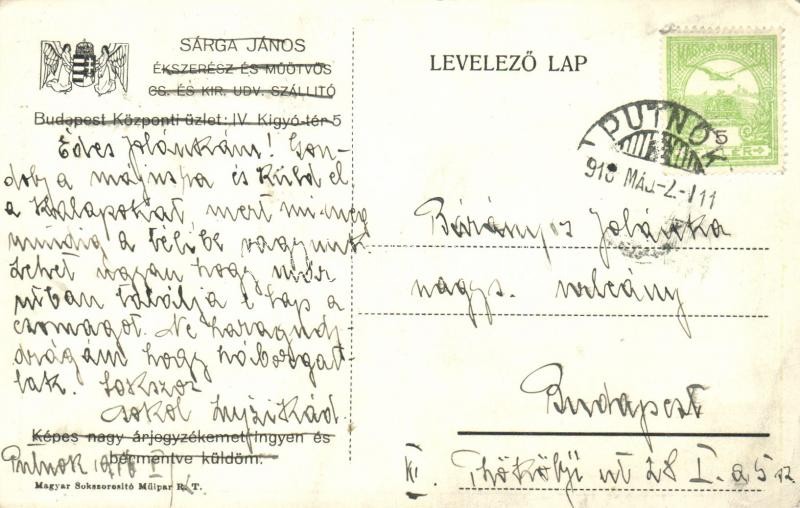 SÁRGA JÁNOS
ÉKSZERÉSZ ÉS MŰÖTVÖS
CS. ÉS KIR. UDV. SZÁLLITÓ
Budapest Központi üzlet: IV. Kigyó-tér 5
Édes Jolánkám! Gon-
dolj a majusra és küld el
a kalapokat, mert mi még
mindig a télibe vagyunk.
Lehet ugyan hogy már
útban találja e lap a
csomagot. Ne haragudj
drágám hogy háborgat-
lak. Sokszor
csókol
Képes nagy árjegyzékemet ingyen és
bérmentve küldöm.
Putnok
Magyar Sokszorosító Műipar R. T.
LEVELEZŐ LAP
MAGYAR KIR. POSTA
5
PUTNOK
918 MÁJ -2 -11
Bárányos Jolánka
nagys.
Budapest
Thököly út 28 I. a 5